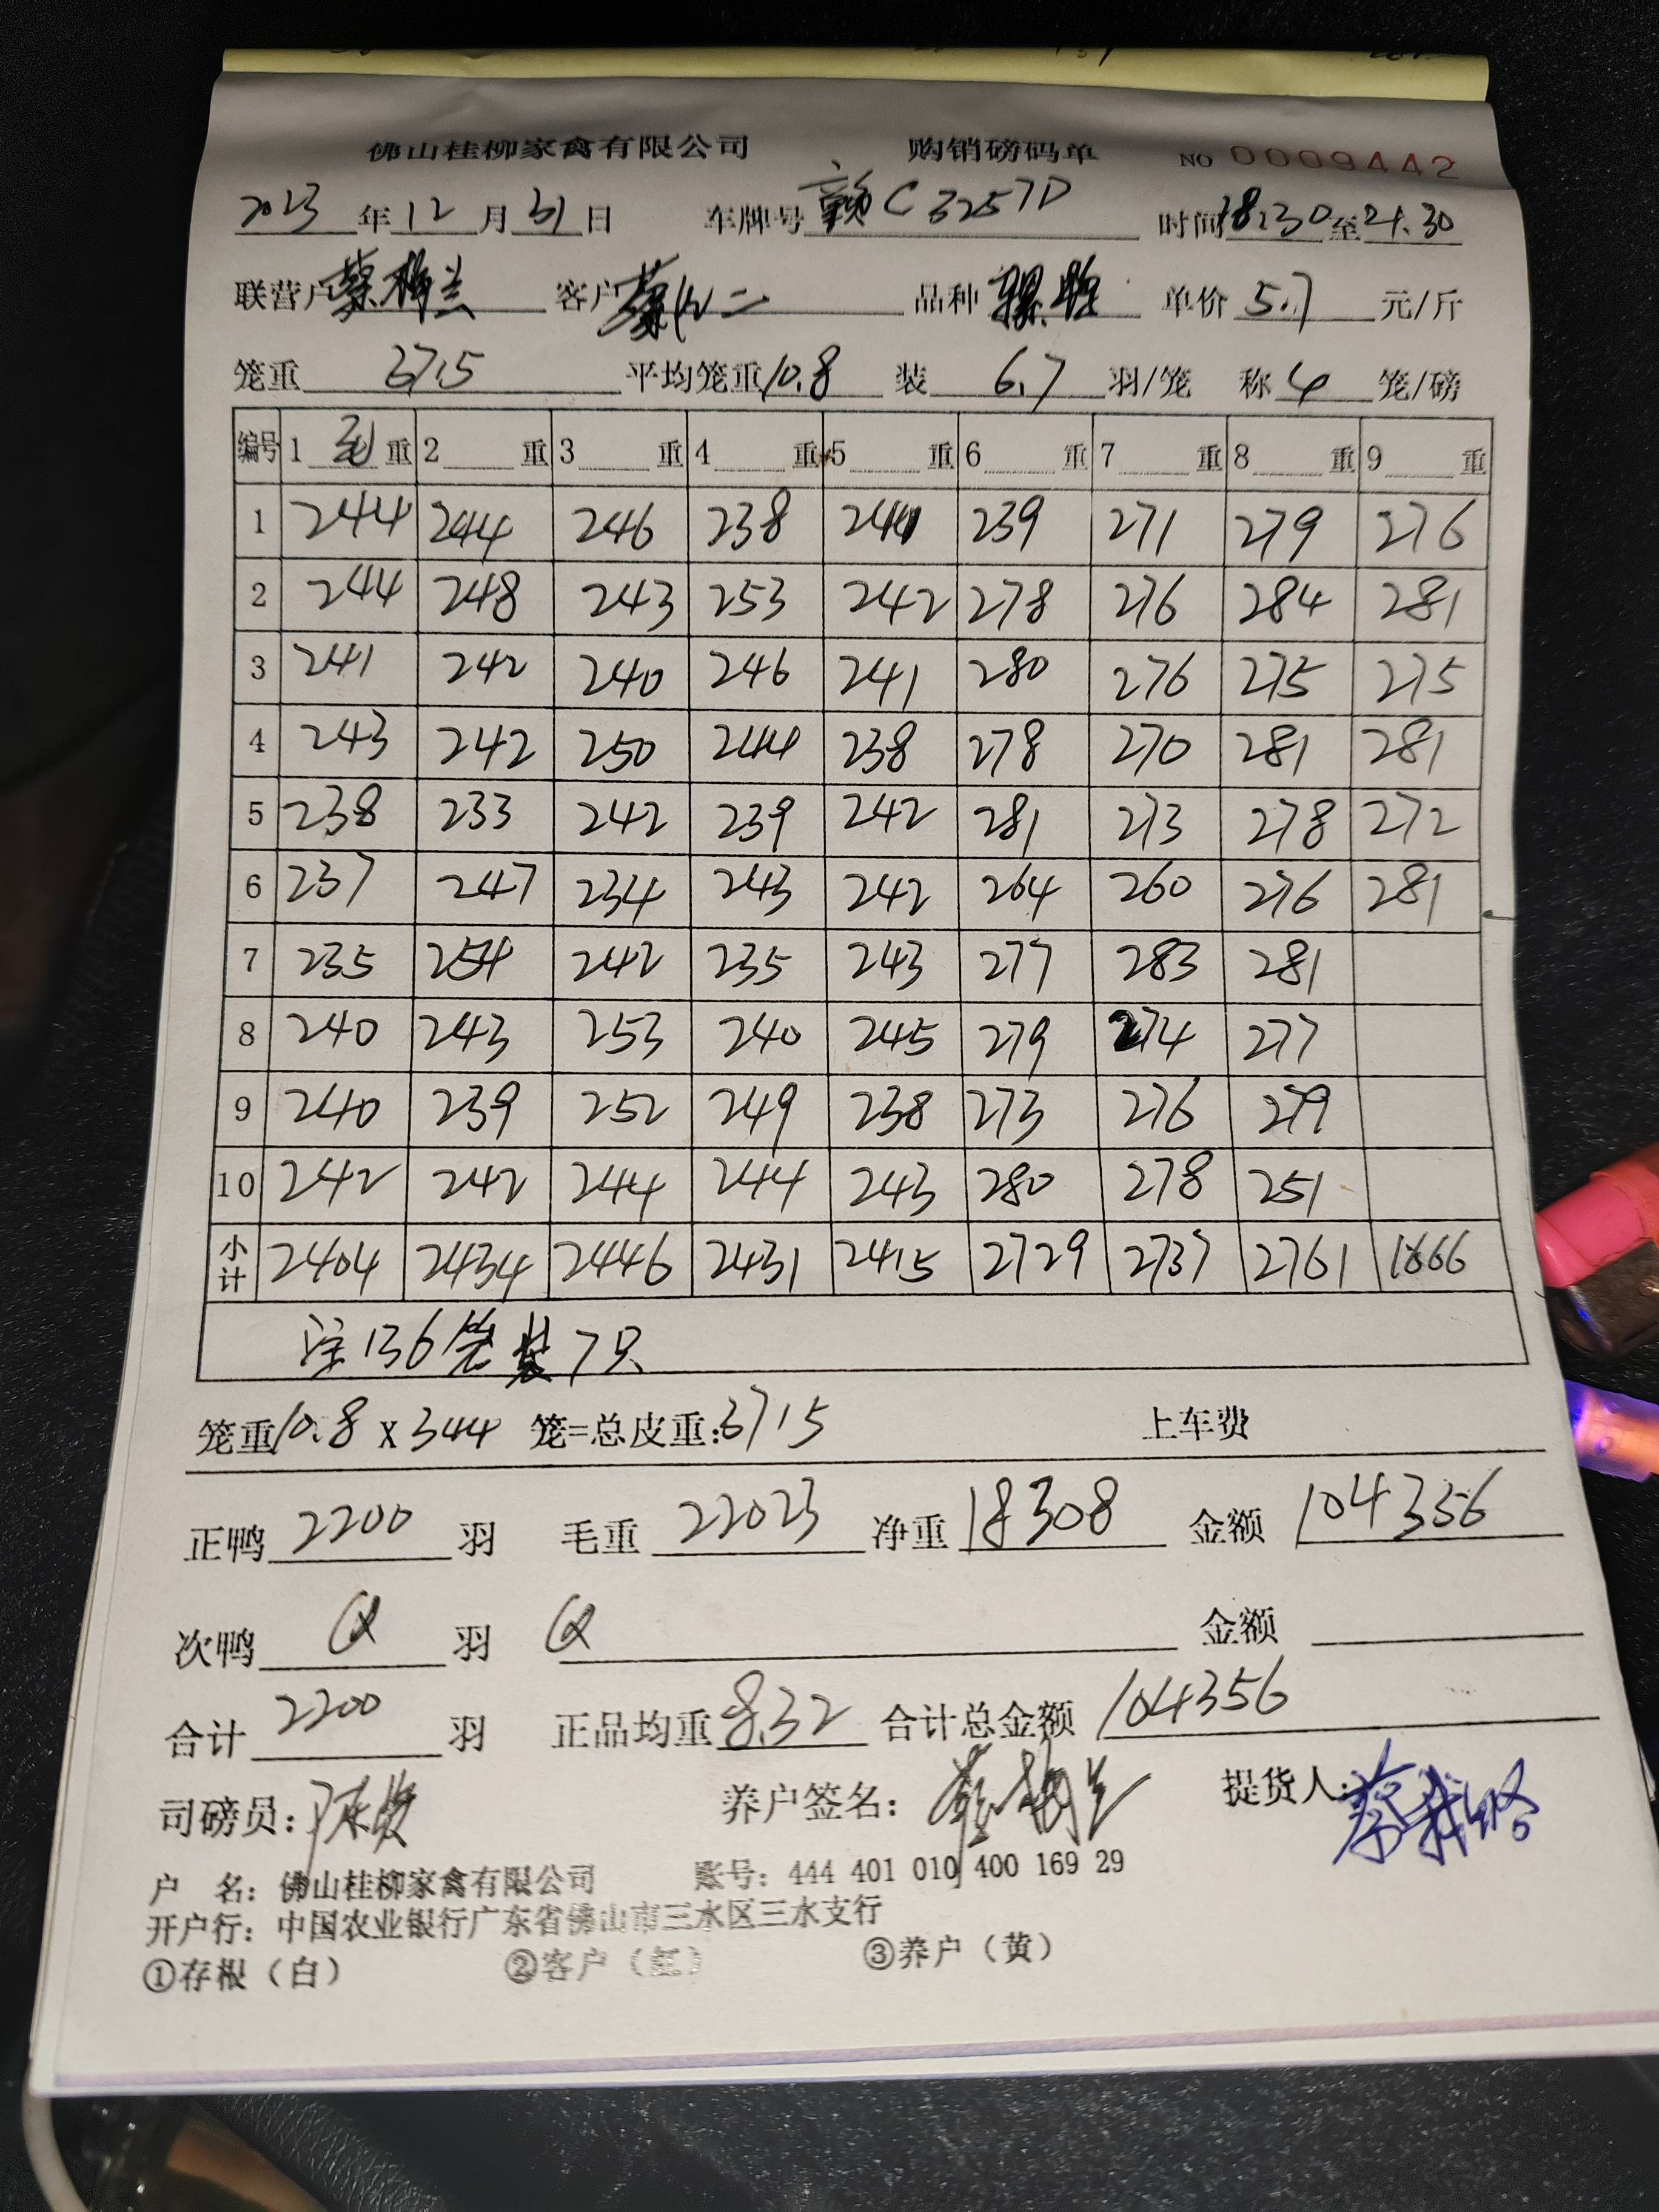 佛山桂柳家禽有限公司 购销磅码单 NO 0009442
2023 年 12 月 31 日 车牌号 赣C3257D 时间 18:30 至 21.30
联营户 蔡梅兰 客户 品种 单价 5.7 元/斤
笼重 3715 平均笼重 10.8 装 6.7 羽/笼 称 4 笼/磅
编号 1 毛 重 2 重 3 重 4 重 5 重 6 重 7 重 8 重 9 重
1 244 244 246 238 241 239 271 279 276
2 244 248 243 253 242 278 276 284 281
3 241 242 240 246 241 280 276 275 275
4 243 242 250 244 238 278 270 281 281
5 238 233 242 239 242 281 273 278 272
6 237 247 234 243 242 264 260 276 281
7 235 254 242 235 243 277 283 281
8 240 243 253 240 245 279 274 277
9 240 239 252 249 238 273 276 279
10 242 242 244 244 243 280 278 251
小计 2404 2434 2446 2431 2415 2729 2737 2761 1666
注136笼装7只
笼重 10.8 X 344 笼=总皮重: 3715 上车费
正鸭 2200 羽 毛重 22023 净重 18308 金额 104356
次鸭 羽 金额
合计 2200 羽 正品均重 8.32 合计总金额 104356
司磅员: 养户签名: 蔡梅兰 提货人:
户 名: 佛山桂柳家禽有限公司 账号: 444 401 010 400 169 29
开户行: 中国农业银行广东省佛山市三水区三水支行
①存根（白） ②客户（红） ③养户（黄）